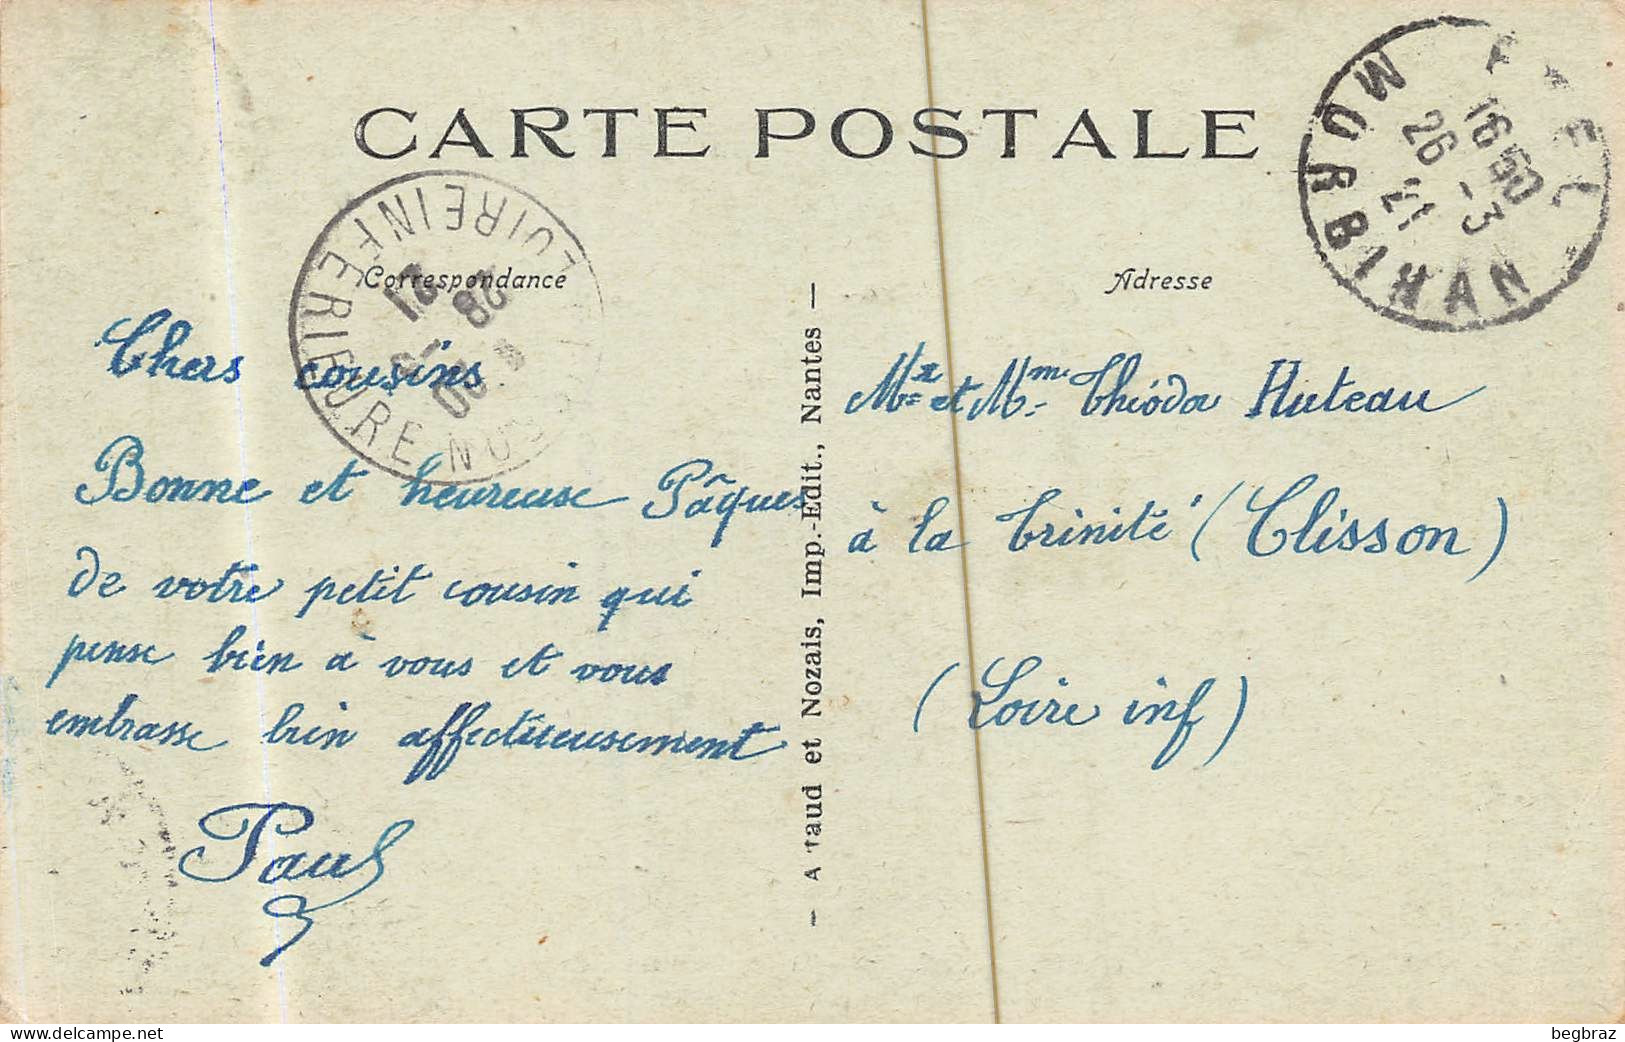 CARTE POSTALE
Correspondance
Adresse
Chers cousins
Bonne et heureuse Pâques
de votre petit cousin qui
pense bien à vous et vous
embrasse bien affectueusement
Paul
Mr et Mme Théodore Huteau
à la Trinité (Clisson)
(Loire inf)
— Artaud et Nozais, Imp.-Edit., Nantes —
MORBIHAN
16 50
26 -3
21
LOIRE INFERIEURE
28
21
delcampe.net
begbraz